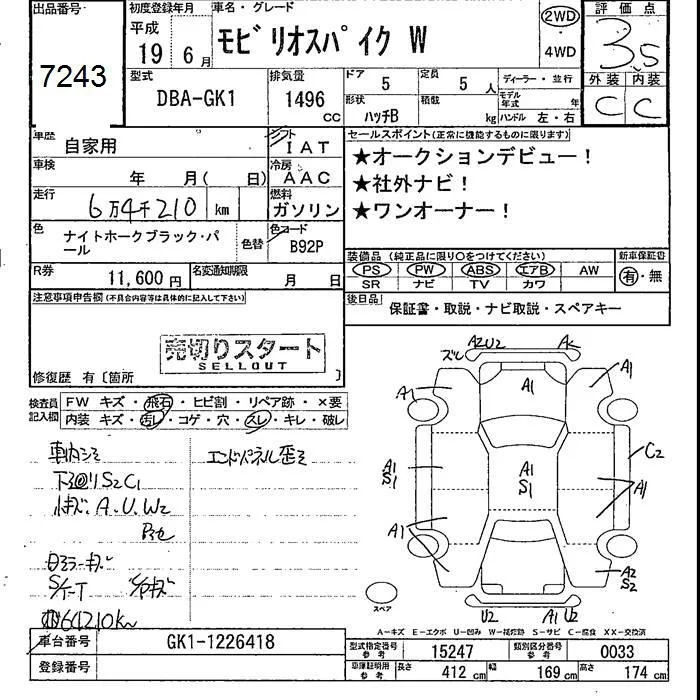 出品番号
7243
初度登録年月
平成
19年 6月
車名・グレード
モビリオスパイク W
2WD
・
4WD
評価点
3.5
外装 内装
C C
型式
DBA-GK1
排気量
1496 CC
ドア 5
定員 5人
形状 ハッチB
積載 kg
ディーラー・並行
モデル年式 年
ハンドル 左・右
車歴 自家用
シフト IAT
車検 年 月( 日)
冷房 AAC
走行 6万4千210 km
燃料 ガソリン
色 ナイトホークブラック・パール
色替
色コード B92P
R券 11,600円
名変通知期限 月 日
セールスポイント(正常に機能するものに限ります)
★オークションデビュー!
★社外ナビ!
★ワンオーナー!
装備品 (純正品に限り○をつけてください)
PS PW ABS エアB AW
SR ナビ TV カワ
新車保証書
有・無
後日品 保証書・取説・ナビ取説・スペアキー
注意事項申告欄(不具合内容等は具体的に記入して下さい)
売切りスタート
SELLOUT
修復歴 有〔箇所 〕
検査員記入欄
FW キズ・飛石・ヒビ割・リペア跡・×要
内装 キズ・汚レ・コゲ・穴・スレ・キレ・破レ
車内シミ
エンドパネル歪ミ
下廻りS2C1
小キズ、A.U.W2
Pネセ
ミラーキズ
64210km
ズレ A2U2 A1
A1 A1 A1
C2
A1 S1
A1 S1
A1
A1
A2 S2
U2 A1 U2
スペア
A-キズ E-エクボ U-凹み W-補修跡 S-サビ C-腐食 XX-交換済
車台番号 GK1-1226418
登録番号
型式指定番号 参考 15247
類別区分番号 参考 0033
車庫証明用 参考 長さ 412 cm 幅 169 cm 高さ 174 cm